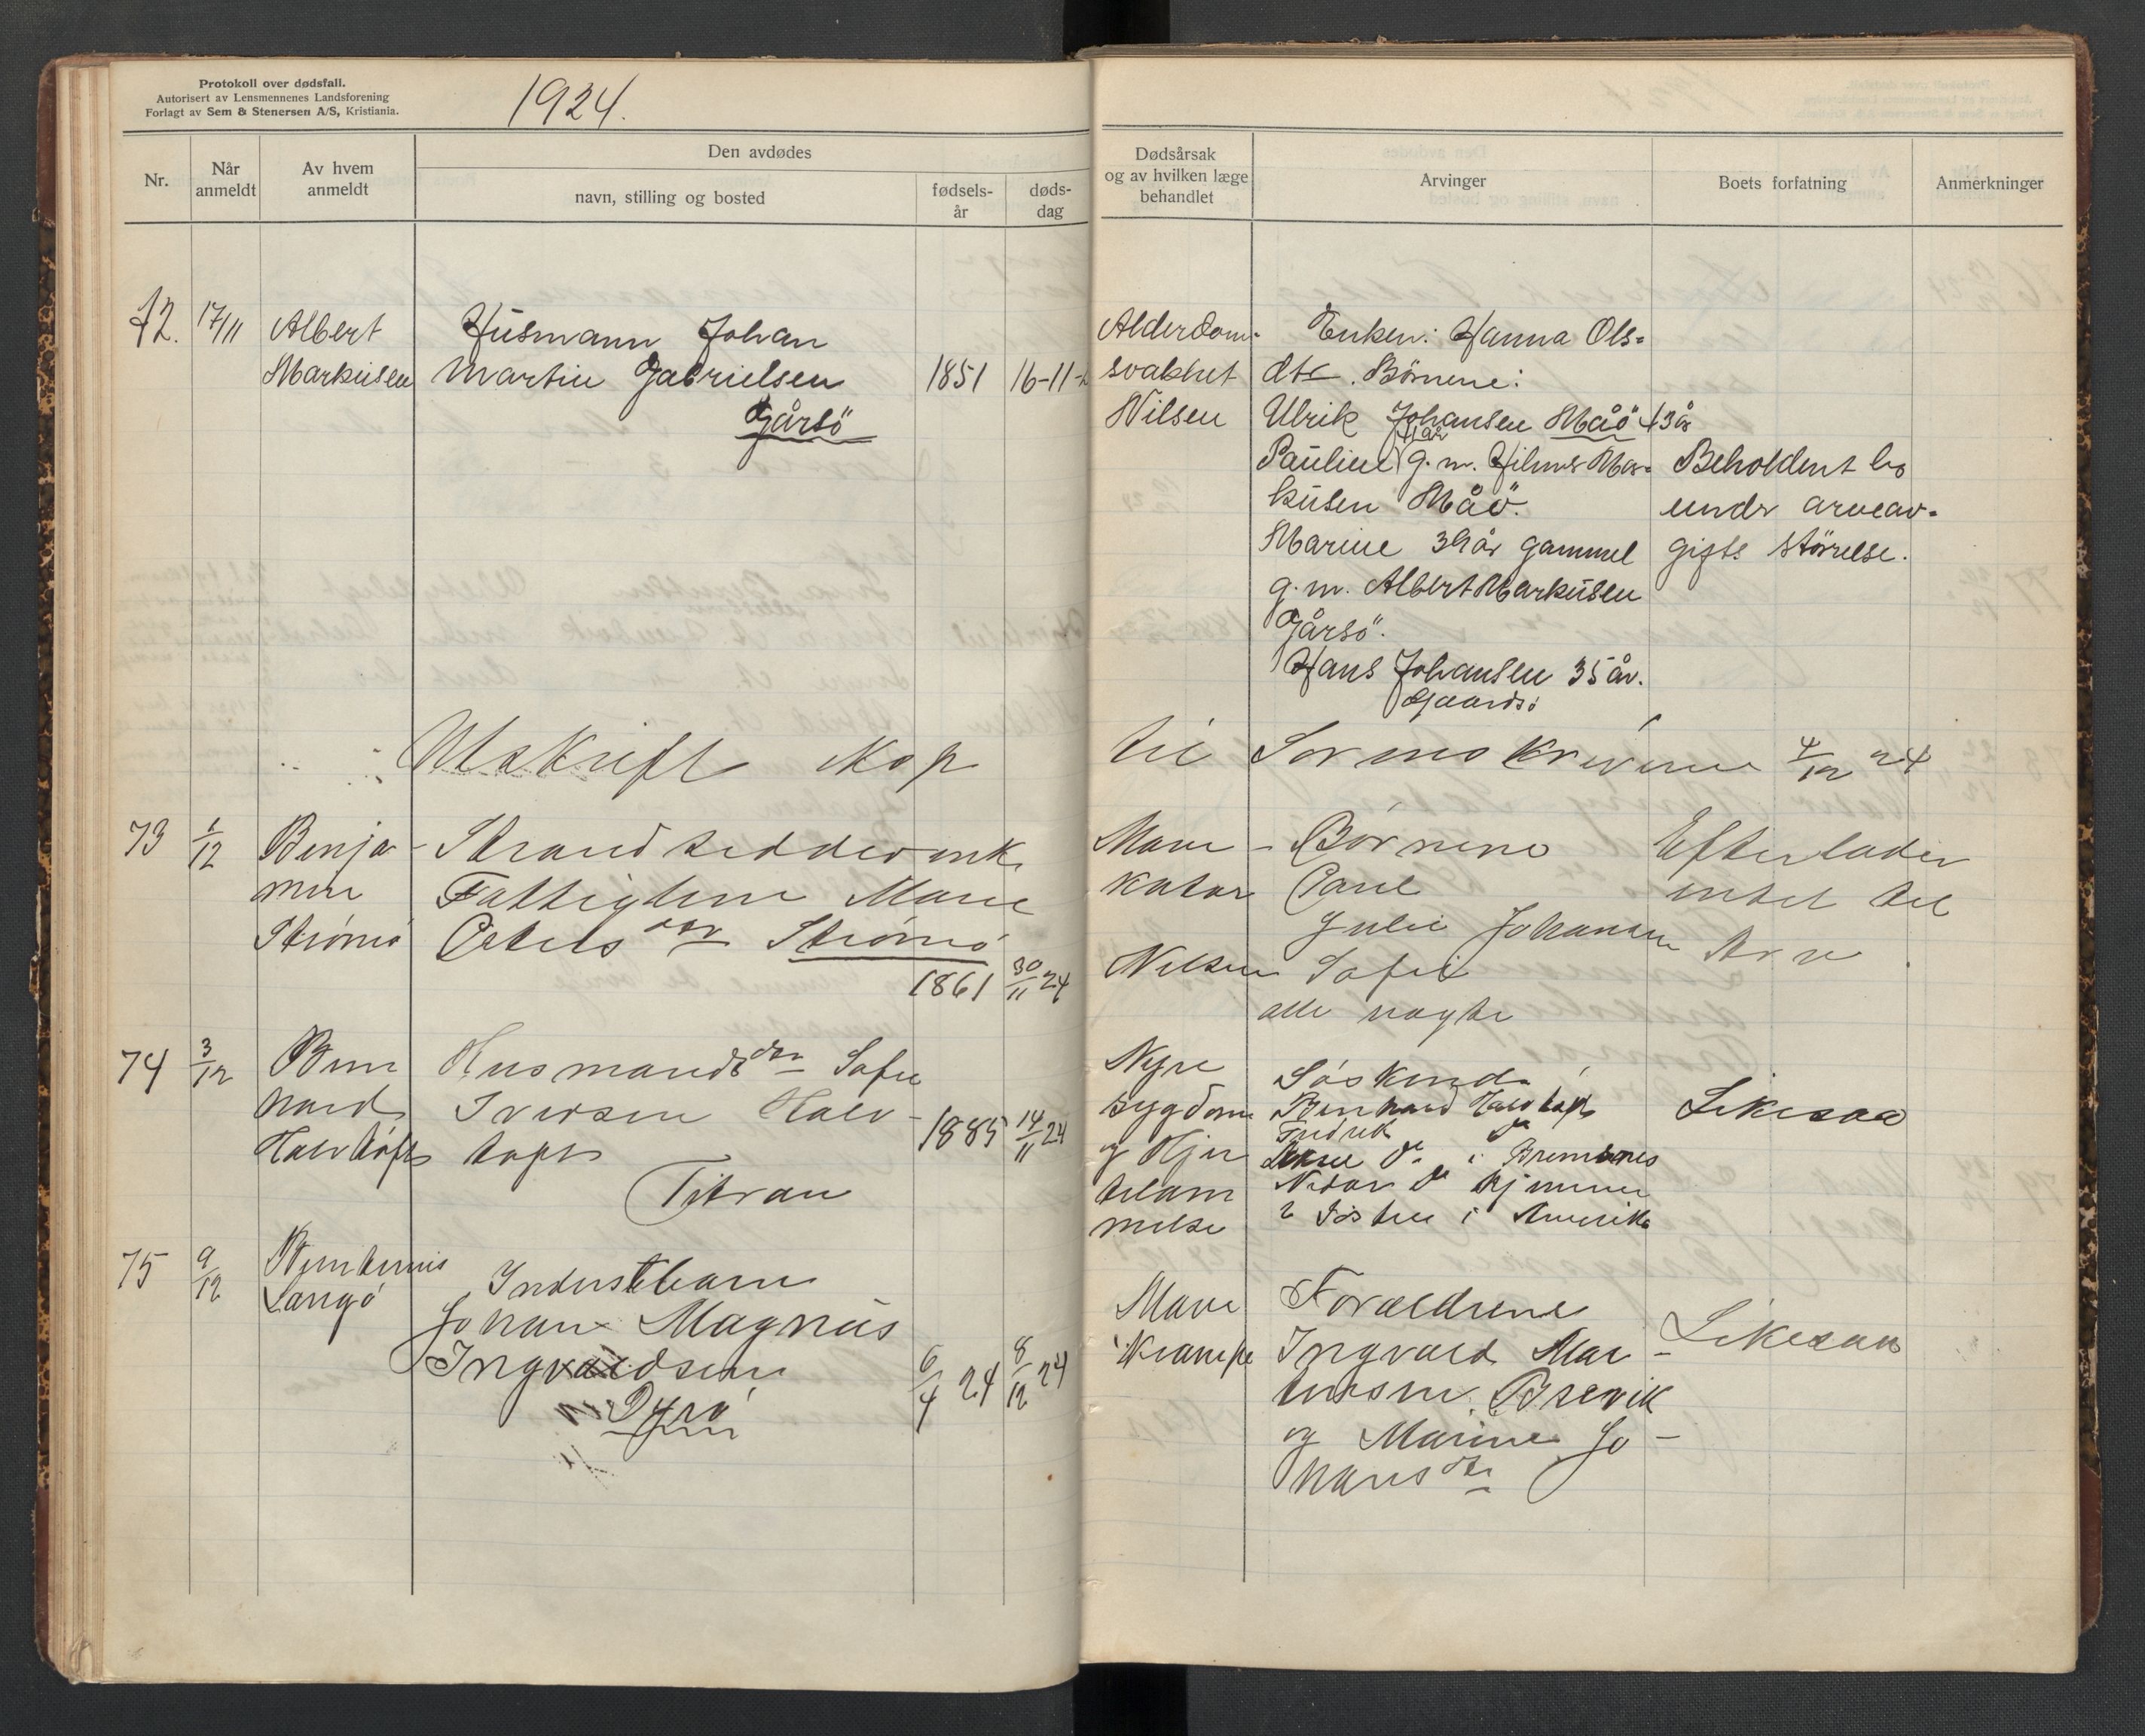 Protokoll over dødsfall.
Autorisert av Lensmennenes Landsforening
Forlagt av Sem & Stenersen A/S, Kristiania.
1924.
Nr.
Når anmeldt
Av hvem anmeldt
Den avdødes
navn, stilling og bosted
fødsels-år
døds-dag
Dødsårsak og av hvilken læge behandlet
Arvinger
Boets forfatning
Anmerkninger
72. 17/11
Albert
Markusen
Husmann Johan
Martin Gabrielsen
Gårsö
1851
16-11-
Alderdom-
svakhet
Nilsen
Enken: Hanna Ols-
dtr. Börnene:
Ulrik Johansen Måö 43 år
41 år
Pauline g.m. Hilmer Mar-
kusen Måö.
Marine 39 år gammel
g.m. Albert Markusen
Gårsö.
Hans Johansen 35 år.
Gaardsö
Beholdent bo
under arveav-
gifts störrelse.
Utskrift
til Sorenskriveren 4/12 24
73 1/12
Benja-
min
Strömö
Strandsidderenke
Fattiglem Marie
dtr Strömö
1861
30/11 24
Mave-
katar
Nilsen
Børnene
Paul
Julie Johansen
Sofie
alle
Efterlader
intet til
Arv.
74 3/12
Bern
hard
Husmandsdtr Sofie
Iversen
Titran
1885
14/11 24
Nyre
sygdom
og Hjer
telam
melse
Søskend
Bernhard
Fredrik do
do i
do
2 Søstre i Amerika
Likesaa
75 9/12
Langö
Inderstbarn
Johan Magnus
Ingvaldsen
Dyrö
6/4 24
8/12 24
Mave
Krampe
Forældrene
Ingvald Mar-
tinsen Brevik
og Marine Jo-
hansdtr
Likesaa